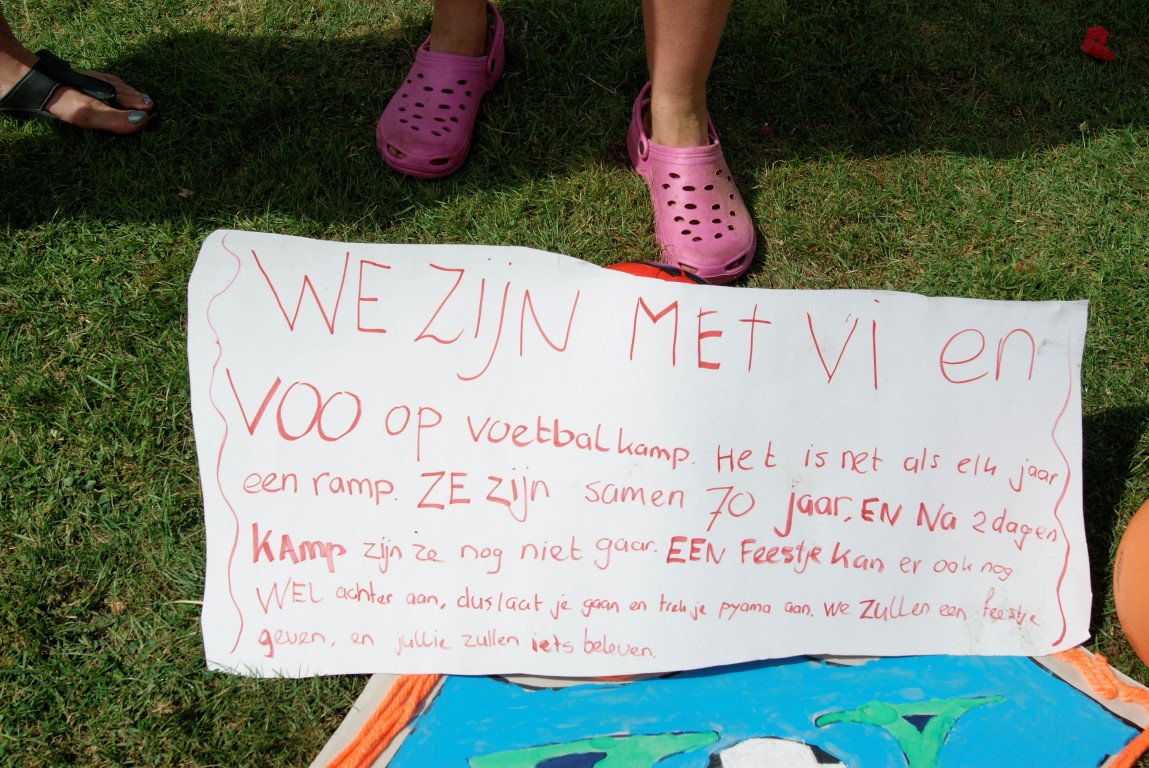 WE ZIJN MET Vi en
VOO op voetbalkamp. Het is net als elk jaar
een ramp. ZE zijn samen 70 jaar, EN Na 2 dagen
KAmp zijn ze nog niet gaar. EEN Feestje Kan er ook nog
WEL achter aan, dus laat je gaan en trek je pyama aan. We ZULLEN een feestje
geven, en jullie zullen iets beleven.